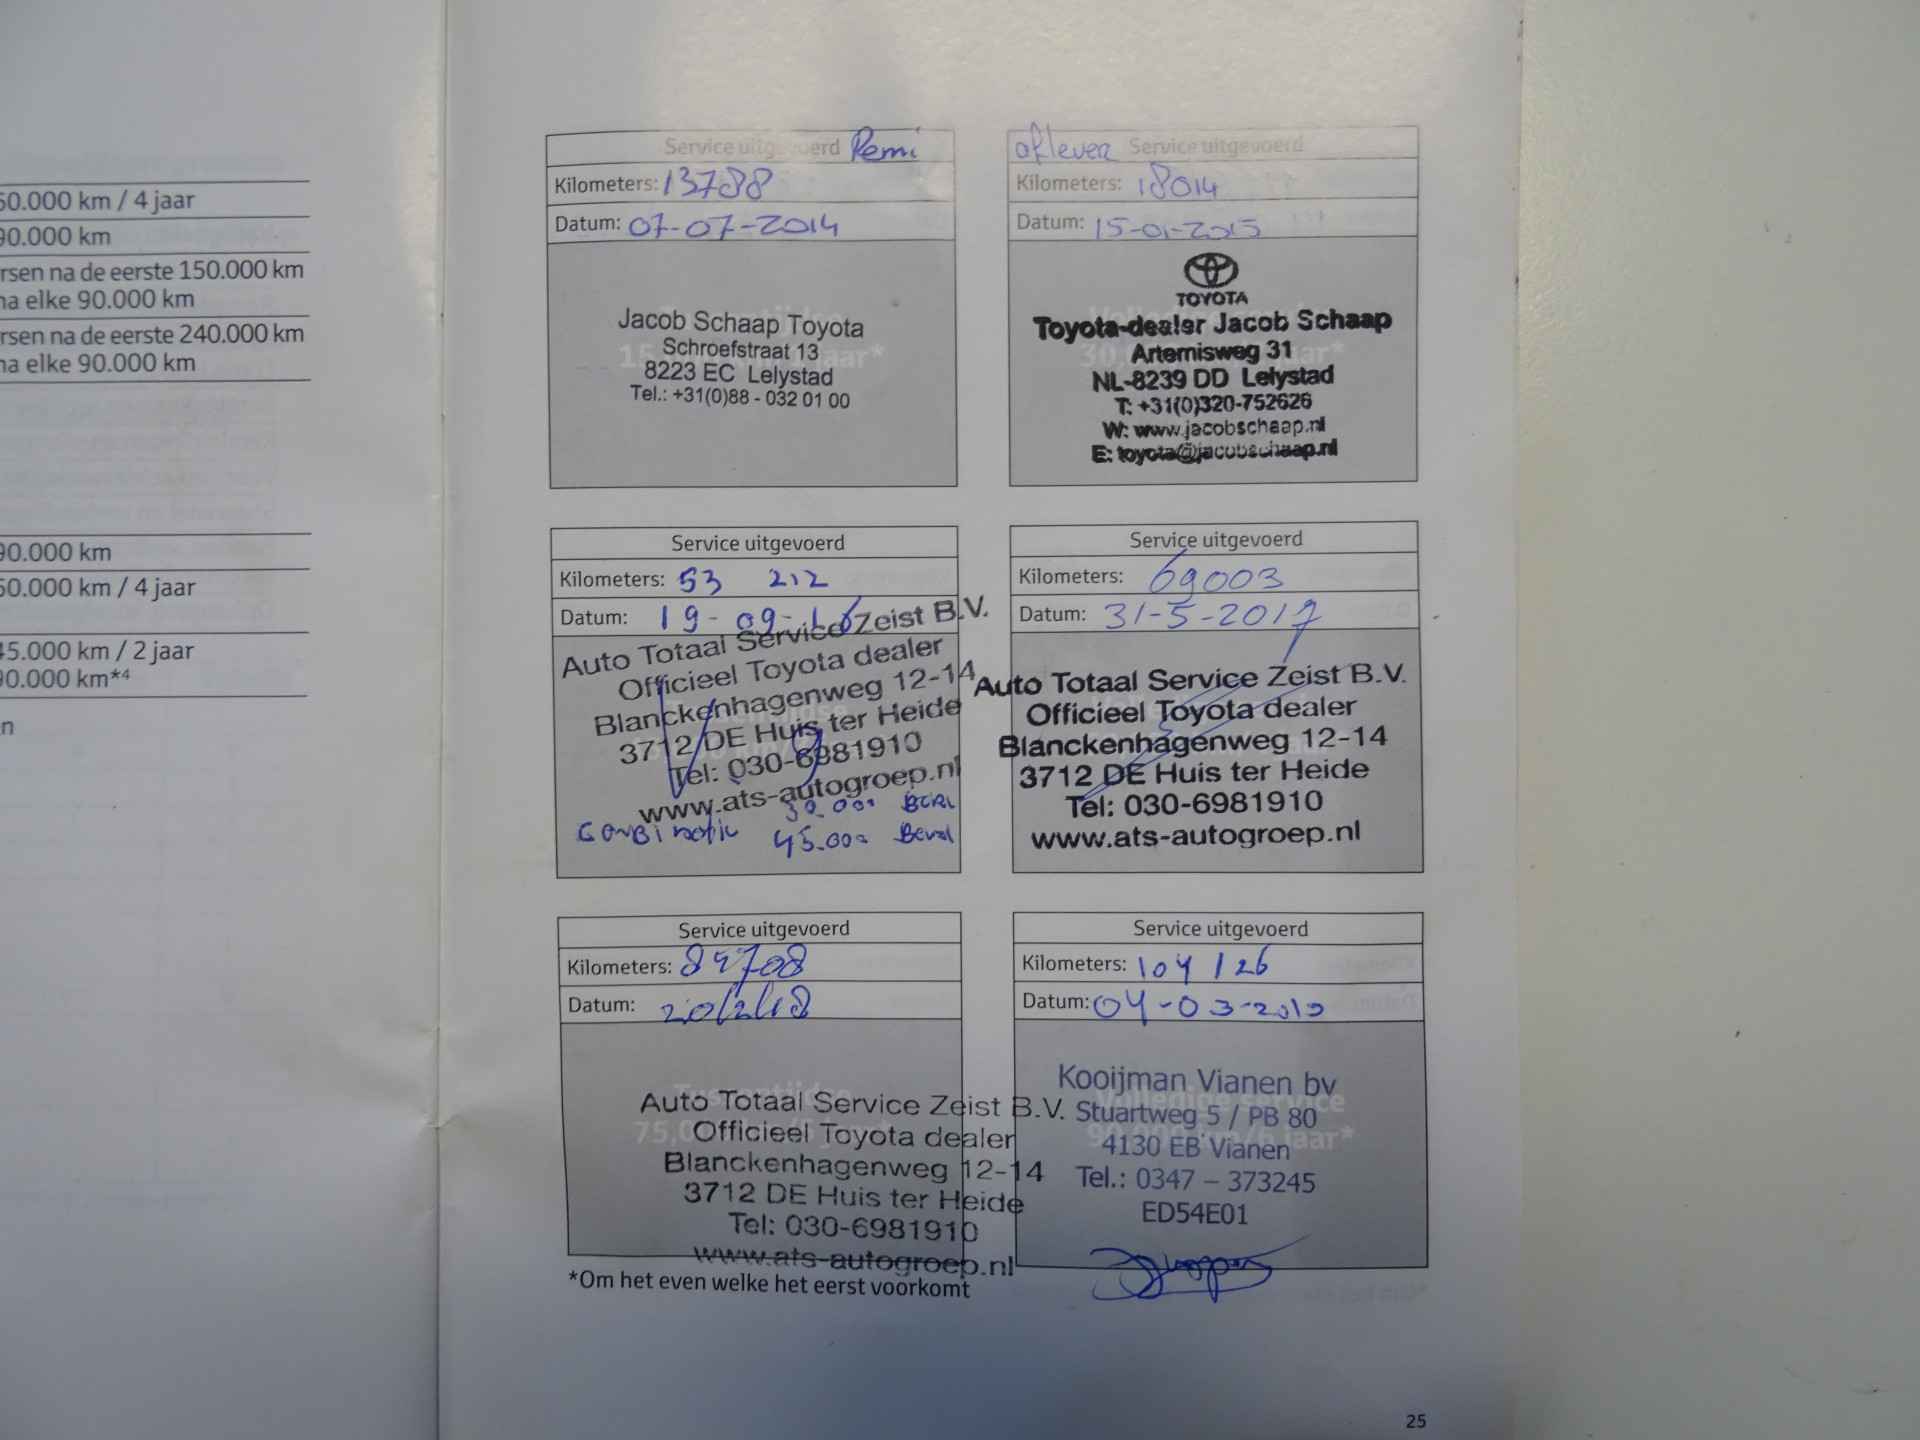 50.000 km / 4 jaar
90.000 km
rsen na de eerste 150.000 km
na elke 90.000 km
rsen na de eerste 240.000 km
na elke 90.000 km
90.000 km
60.000 km / 4 jaar
45.000 km / 2 jaar
90.000 km*4
n
Service uitgevoerd Remi
Kilometers: 13788
Datum: 07-07-2014
Jacob Schaap Toyota
Schroefstraat 13
8223 EC Lelystad
Tel.: +31(0)88 - 032 01 00
aflever Service uitgevoerd
Kilometers: 18014
Datum: 15-01-2015
TOYOTA
Toyota-dealer Jacob Schaap
Artemisweg 31
NL-8239 DD Lelystad
T: +31(0)320-752626
W: www.jacobschaap.nl
E: toyota@jacobschaap.nl
Service uitgevoerd
Kilometers: 53 212
Datum: 19-09-16
Auto Totaal Service Zeist B.V.
Officieel Toyota dealer
Blanckenhagenweg 12-14
3712 DE Huis ter Heide
Tel: 030-6981910
www.ats-autogroep.nl
30.000
45.000
Service uitgevoerd
Kilometers: 69003
Datum: 31-5-2017
Auto Totaal Service Zeist B.V.
Officieel Toyota dealer
Blanckenhagenweg 12-14
3712 DE Huis ter Heide
Tel: 030-6981910
www.ats-autogroep.nl
Service uitgevoerd
Kilometers:
Datum: 20/2/18
Tussentijdse
Auto Totaal Service Zeist B.V.
Officieel Toyota dealer
Blanckenhagenweg 12-14
3712 DE Huis ter Heide
Tel: 030-6981910
www.ats-autogroep.nl
Service uitgevoerd
Kilometers: 104 126
Datum: 04-03-2019
Volledige service
90.000 km/6 jaar*
Kooijman Vianen bv
Stuartweg 5 / PB 80
4130 EB Vianen
Tel.: 0347 – 373245
ED54E01
*Om het even welke het eerst voorkomt
25